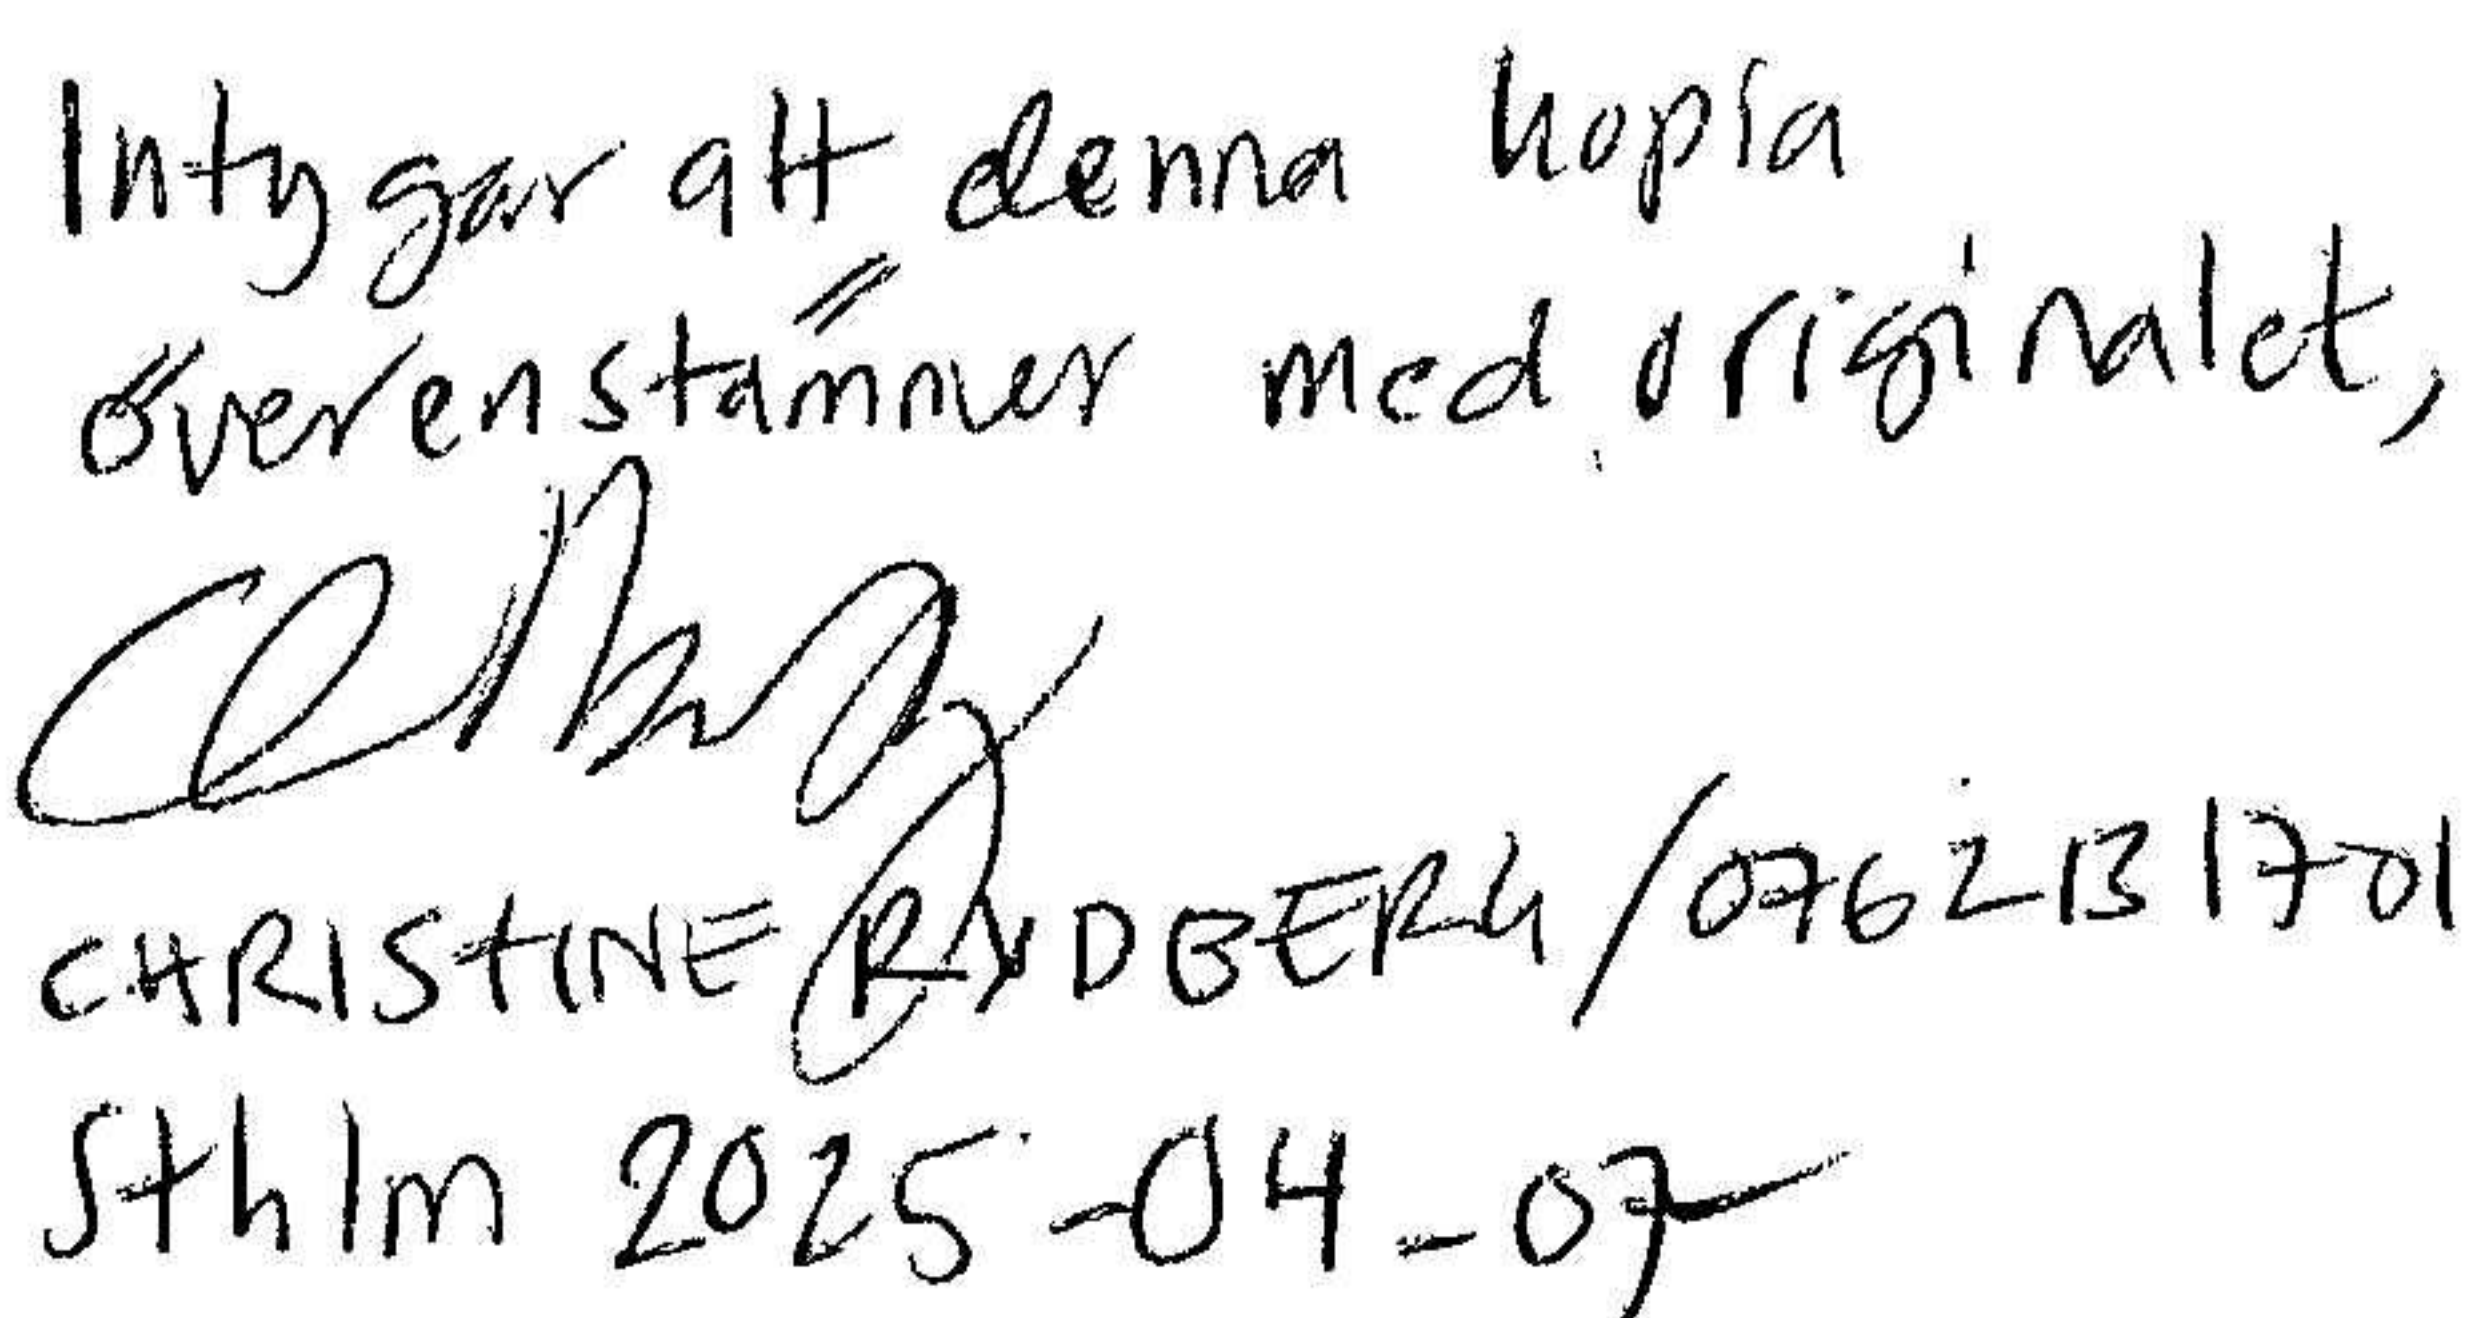 Intygar att denna kopia
överenstämmer med originalet,
CHRISTINE RYDBERG/0762131701
Sthlm 2025-04-07